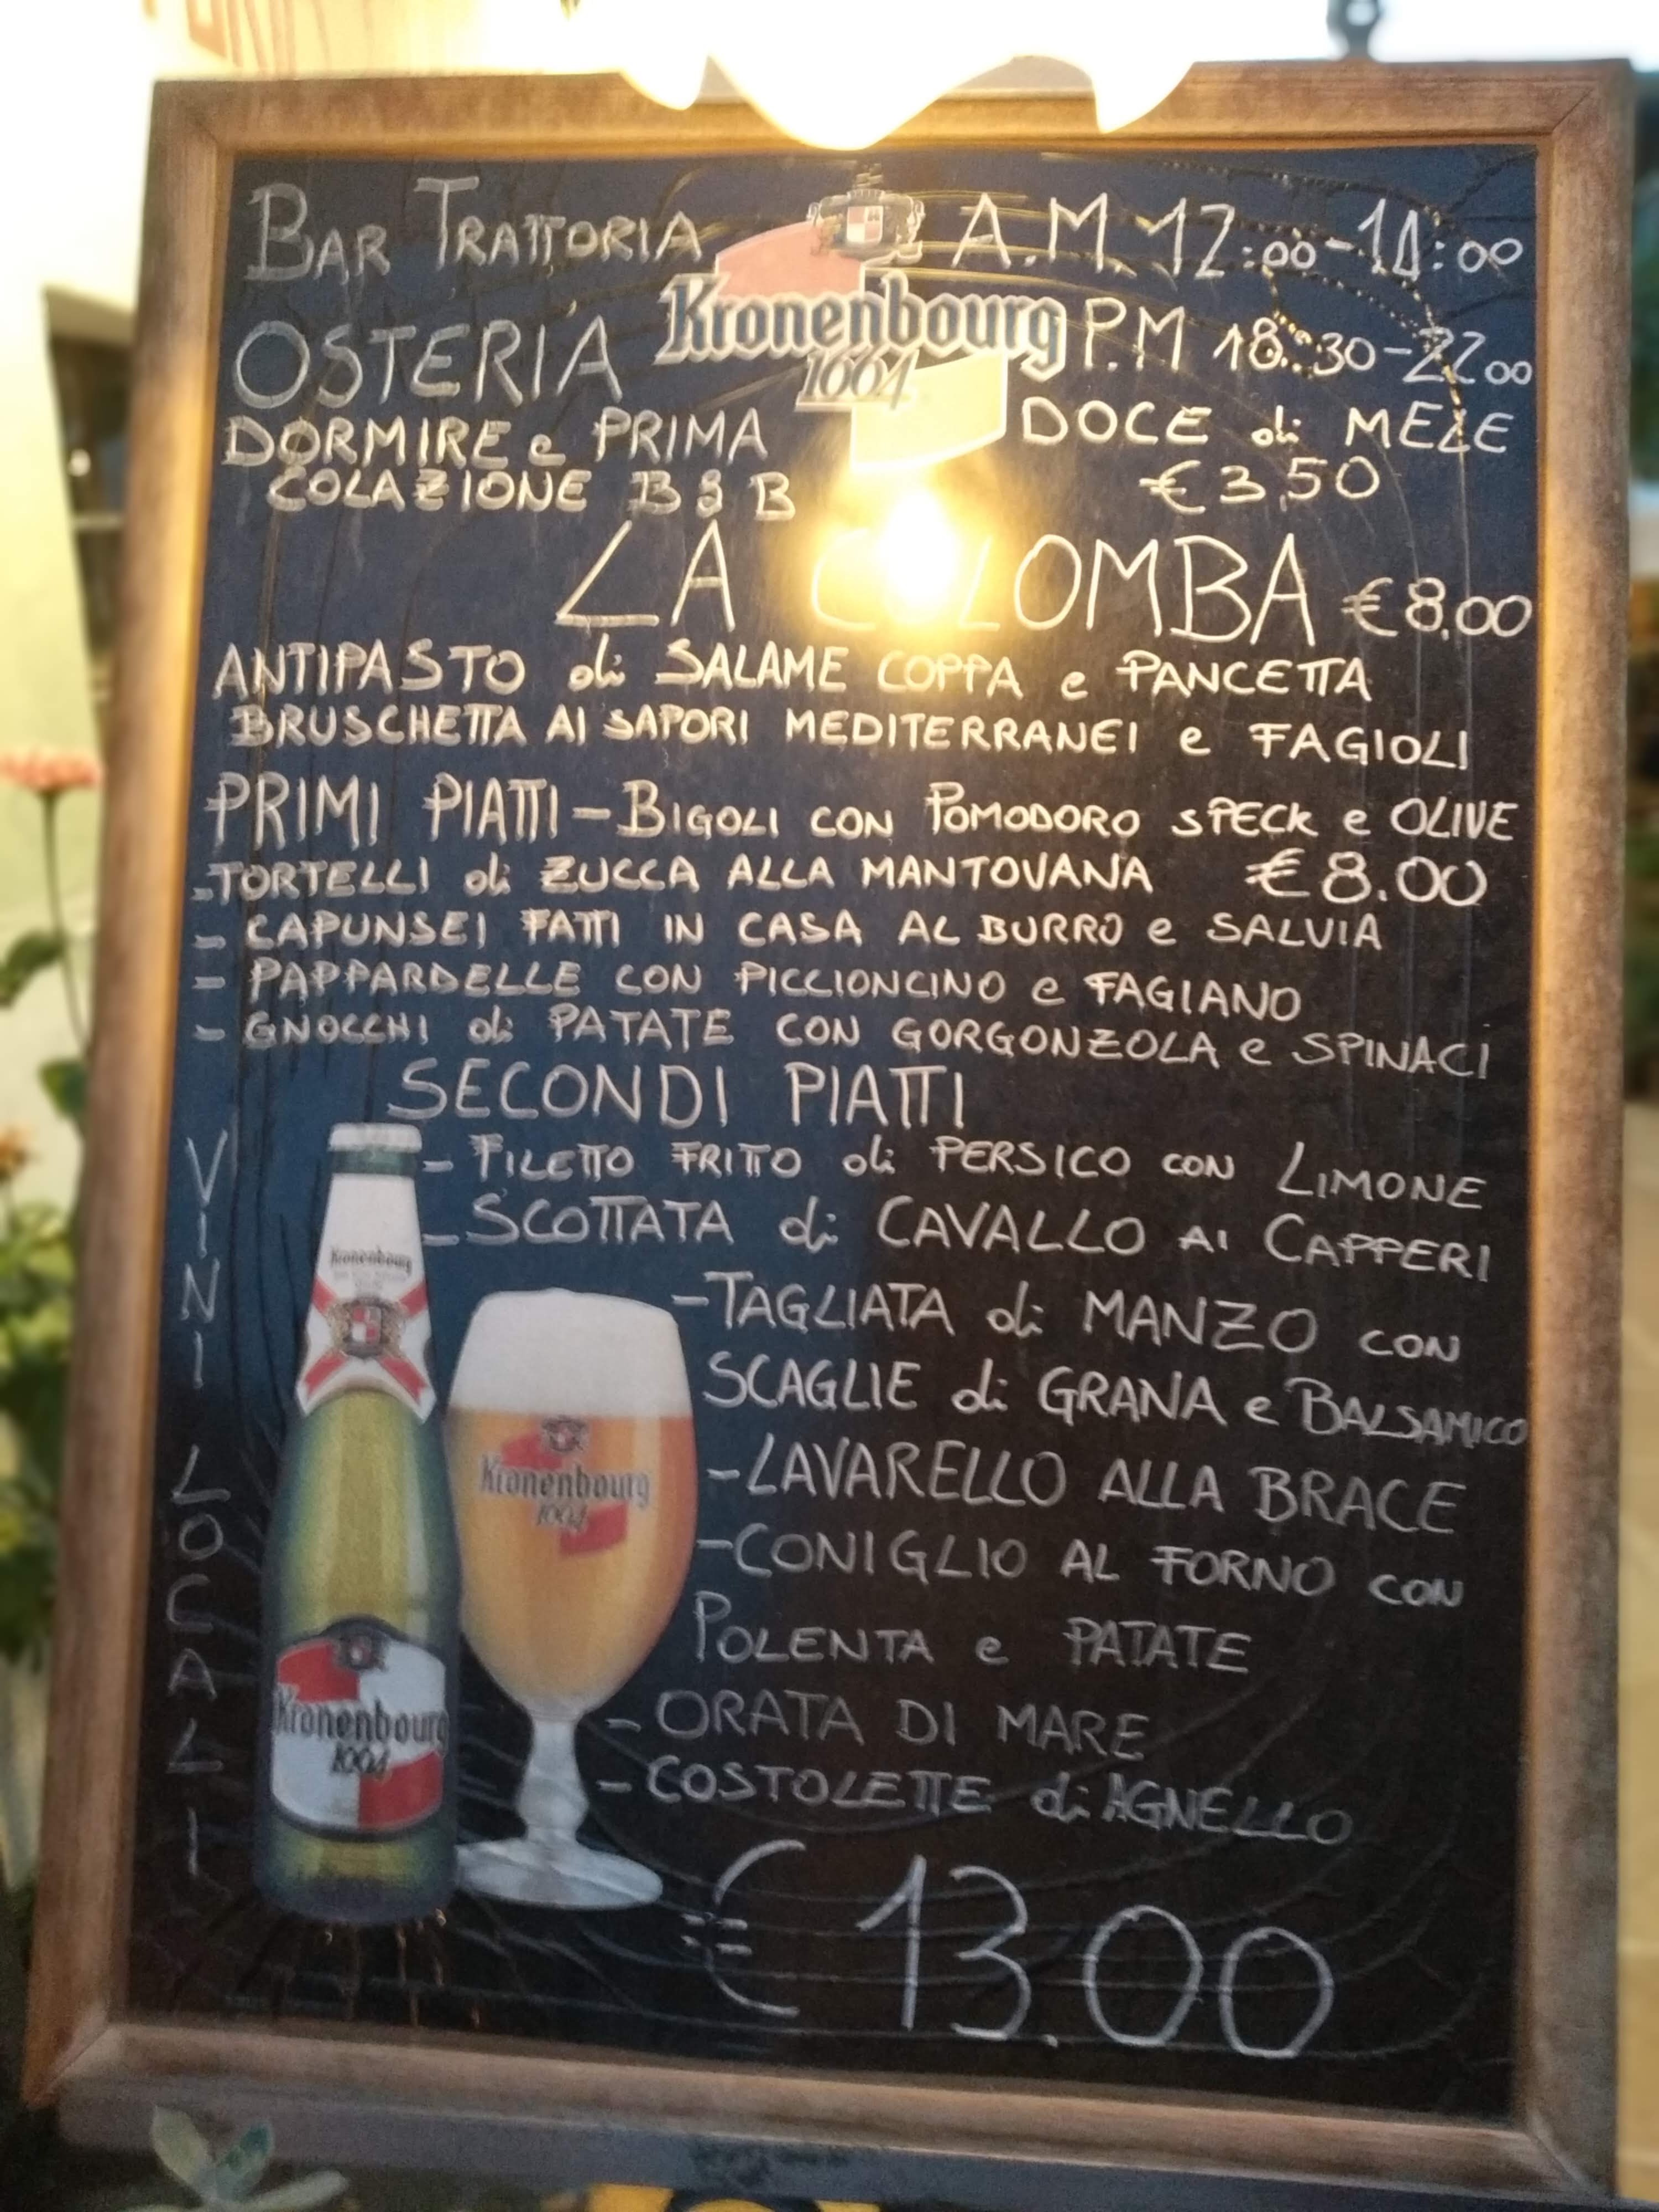 BAR TRATTORIA
A.M. 12:00-14:00
Kronenbourg
1664
OSTERIA
P.M 18:30-22.00
DORMIRE e PRIMA
COLAZIONE B & B
DOCE di MELE
€ 3,50
LA COLOMBA € 8,00
ANTIPASTO di SALAME COPPA e PANCETTA
BRUSCHETTA AI SAPORI MEDITERRANEI e FAGIOLI
PRIMI PIATTI - BIGOLI CON POMODORO SPECK e OLIVE
-TORTELLI di ZUCCA ALLA MANTOVANA € 8.00
- CAPUNSEI FATTI IN CASA AL BURRO e SALVIA
- PAPPARDELLE CON PICCIONCINO e FAGIANO
- GNOCCHI di PATATE CON GORGONZOLA e SPINACI
SECONDI PIATTI
- FILETTO FRITTO di PERSICO CON LIMONE
- SCOTTATA di CAVALLO AI CAPPERI
- TAGLIATA di MANZO CON
SCAGLIE di GRANA e BALSAMICO
- LAVARELLO ALLA BRACE
- CONIGLIO AL FORNO CON
POLENTA e PATATE
- ORATA DI MARE
- COSTOLETTE di AGNELLO
€ 13.00
VINI LOCALI
Kronenbourg
Kronenbourg
1664
Kronenbourg
1664